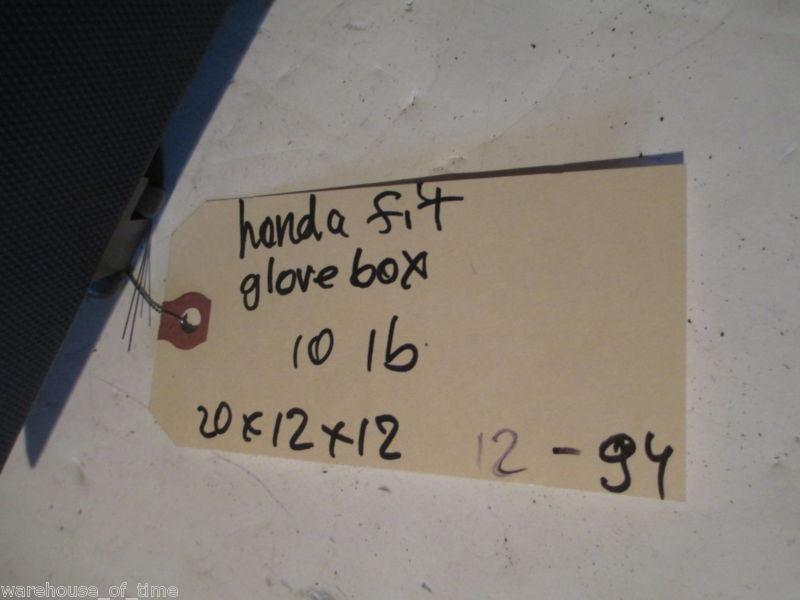 honda fit
glove box
10 lb.
20x12x12
12 - 94
warehouse_of_time